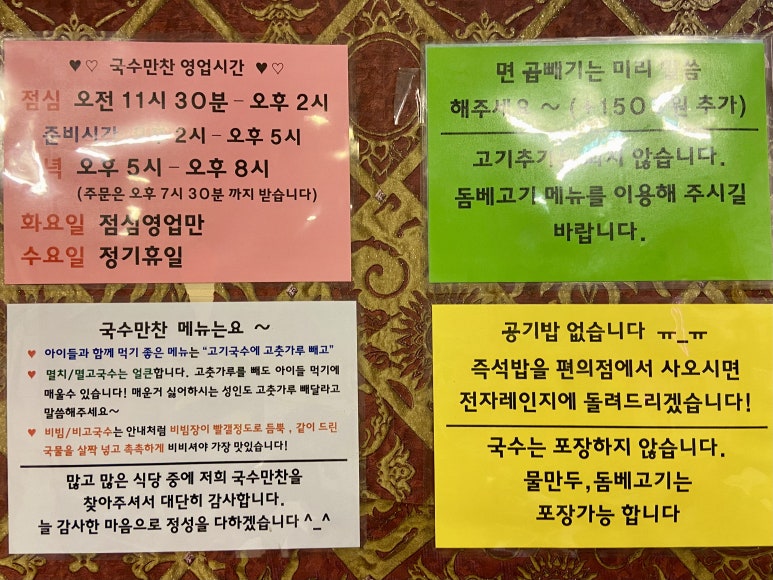 ♥♡ 국수만찬 영업시간 ♥♡
점심 오전 11시 30분 - 오후 2시
준비시간 2시 - 오후 5시
오후 5시 - 오후 8시
(주문은 오후 7시 30분 까지 받습니다)
화요일 점심영업만
수요일 정기휴일
면 곱빼기는 미리
해주세요 ~ ( 추가)
고기추가 않습니다.
돔베고기 메뉴를 이용해 주시길
바랍니다.
국수만찬 메뉴는요 ~
♥ 아이들과 함께 먹기 좋은 메뉴는 "고기국수에 고춧가루 빼고"
♥ 멸치/멸고국수는 얼큰합니다. 고춧가루를 빼도 아이들 먹기에
매울수 있습니다! 매운거 싫어하시는 성인도 고춧가루 빼달라고
말씀해주세요~
♥ 비빔/비고국수는 안내처럼 비빔장이 빨결정도로 듬뿍 , 같이 드린
국물을 살짝 넣고 촉촉하게 비비셔야 가장 맛있습니다!
많고 많은 식당 중에 저희 국수만찬을
찾아주셔서 대단히 감사합니다.
늘 감사한 마음으로 정성을 다하겠습니다 ^_^
공기밥 없습니다 ㅠ_ㅠ
즉석밥을 편의점에서 사오시면
전자레인지에 돌려드리겠습니다!
국수는 포장하지 않습니다.
물만두,돔베고기는
포장가능 합니다